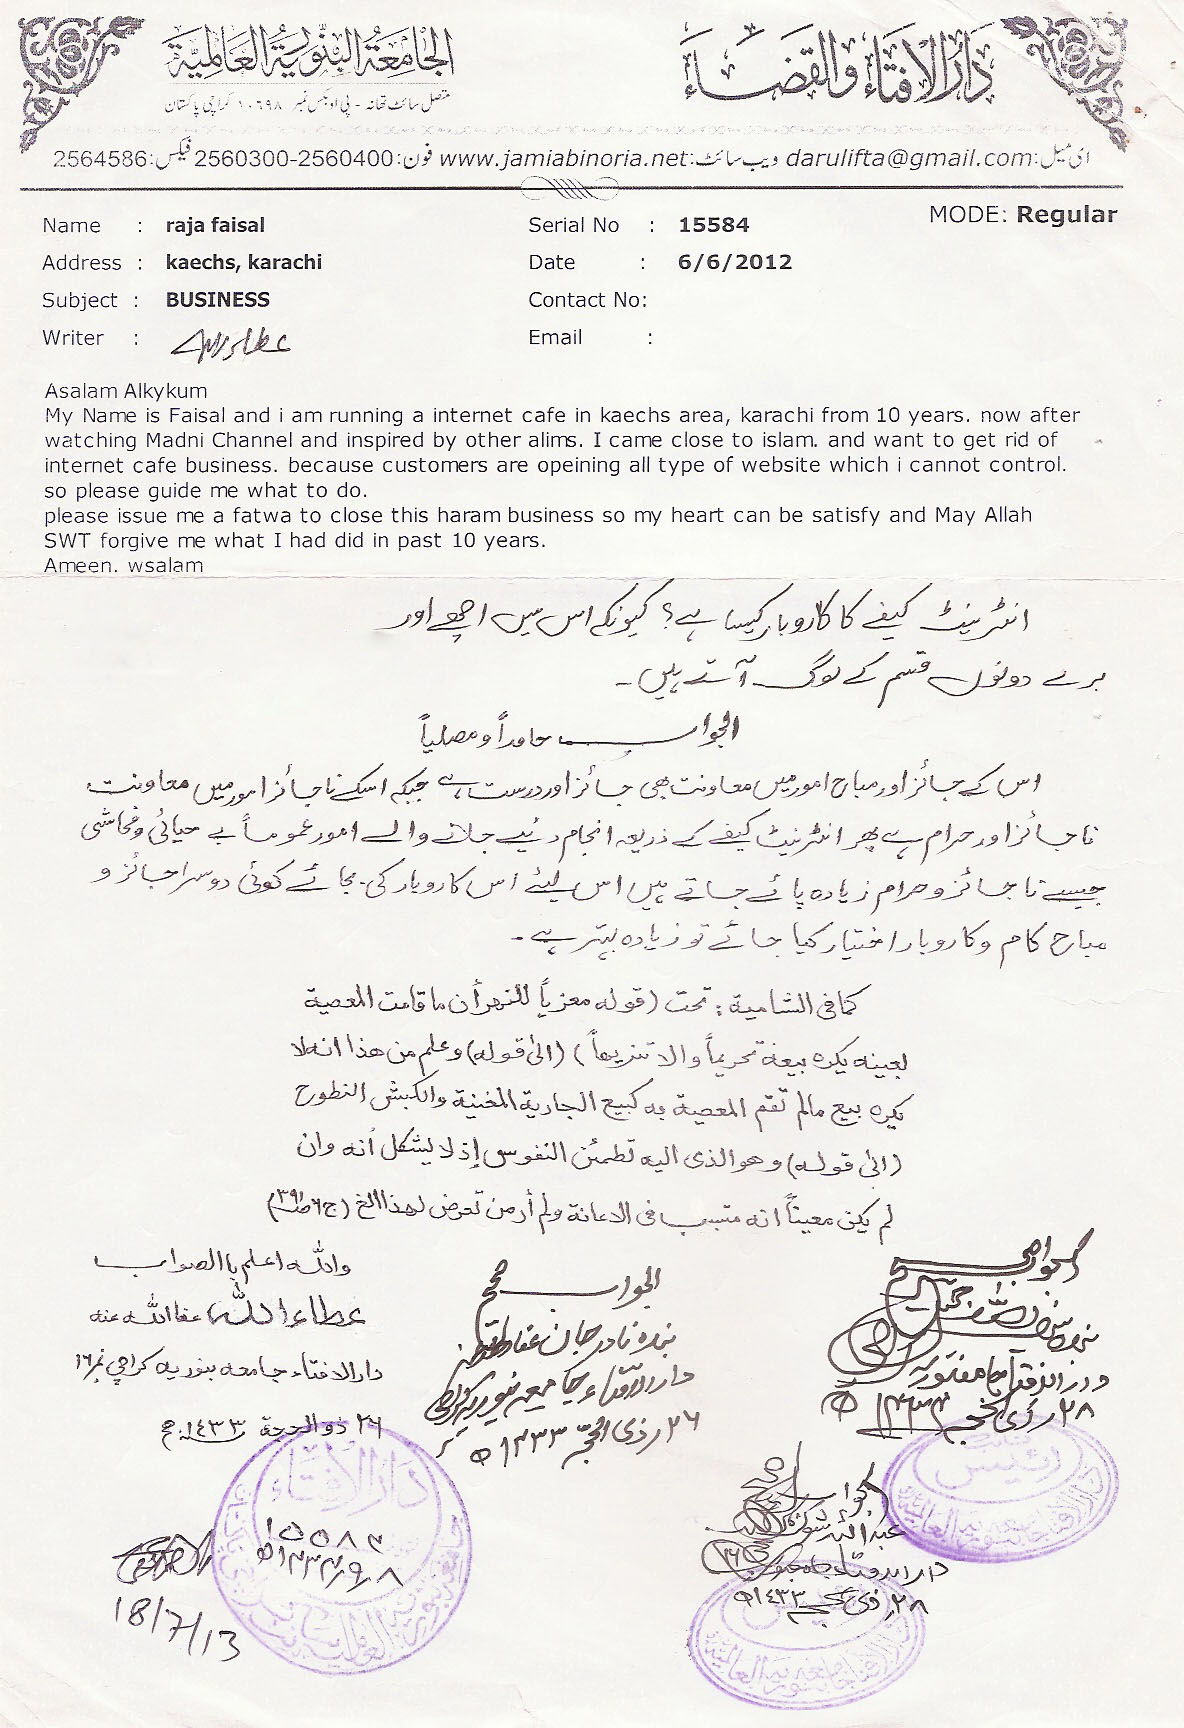 الجامعة البنورية العالمية
دار الافتاء والقضاء
متصل سائٹ تھانہ - پی او بکس نمبر ۱۰۶۹۸ کراچی پاکستان
ای میل: darulifta@gmail.com ویب سائٹ: www.jamiabinoria.net فون: 2560300-2560400 فیکس: 2564586
MODE: Regular
Name : raja faisal Serial No : 15584
Address : kaechs, karachi Date : 6/6/2012
Subject : BUSINESS Contact No:
Writer : عطاء اللہ Email :
Asalam Alkykum
My Name is Faisal and i am running a internet cafe in kaechs area, karachi from 10 years. now after
watching Madni Channel and inspired by other alims. I came close to islam. and want to get rid of
internet cafe business. because customers are opeining all type of website which i cannot control.
so please guide me what to do.
please issue me a fatwa to close this haram business so my heart can be satisfy and May Allah
SWT forgive me what I had did in past 10 years.
Ameen. wsalam
انٹرنیٹ کیفے کا کاروبار کیسا ہے؟ کیونکہ اس میں اچھے اور
برے دونوں قسم کے لوگ آتے ہیں۔
الجواب حامداً و مصلیاً
اس کے جائز اور مباح امور میں معاونت بھی جائز اور درست ہے جبکہ اسکے ناجائز امور میں معاونت
ناجائز اور حرام ہے پھر انٹرنیٹ کیفے کے ذریعہ انجام دئیے جانے والے امور عموماً بے حیائی و فحاشی
جیسے ناجائز و حرام زیادہ پائے جاتے ہیں اس لیئے اس کاروبار کی بجائے کوئی دوسرا جائز و
مباح کام و کاروبار اختیار کیا جائے تو زیادہ بہتر ہے۔
كما فى الشامية: تحت (قوله معزياً للنهر أن ما قامت المعصية
بعينه يكره بيعه تحريماً والا تنزيهاً) (الى قوله) وعلم من هذا انه لا
يكره بيع مالم تقم المعصية به كبيع الجارية المغنية والكبش النطوح
(الى قوله) وهو الذى اليه تطمئن النفوس إذ لا يشكل أنه وان
لم يكن معيناً انه متسبب فى الاعانة ولم أر من تعرض لهذا الخ (ج۶ ص۳۹۱)
واللہ اعلم باالصواب
عطاء اللہ عفا اللہ عنہ
دارالافتاء جامعہ بنوریہ کراچی نمبر ۱۶
۲۶ ذوالحجۃ ۱۴۳۳ھ
الجواب صحیح
بندہ نادر جان عفا اللہ عنہ
دارالافتاء جامعہ بنوریہ کراچی
۲۶ ذی الحجہ ۱۴۳۳ھ
الجواب صحیح
دارالافتاء جامعہ بنوریہ
۲۸ ذی الحجہ ۱۴۳۳ھ
الجواب صحیح
عبد اللہ شوکت
دارالافتاء جامعہ بنوریہ
۲۸ ذی الحجہ ۱۴۳۳ھ
رئیس
دار الافتاء
15584
18/7/13